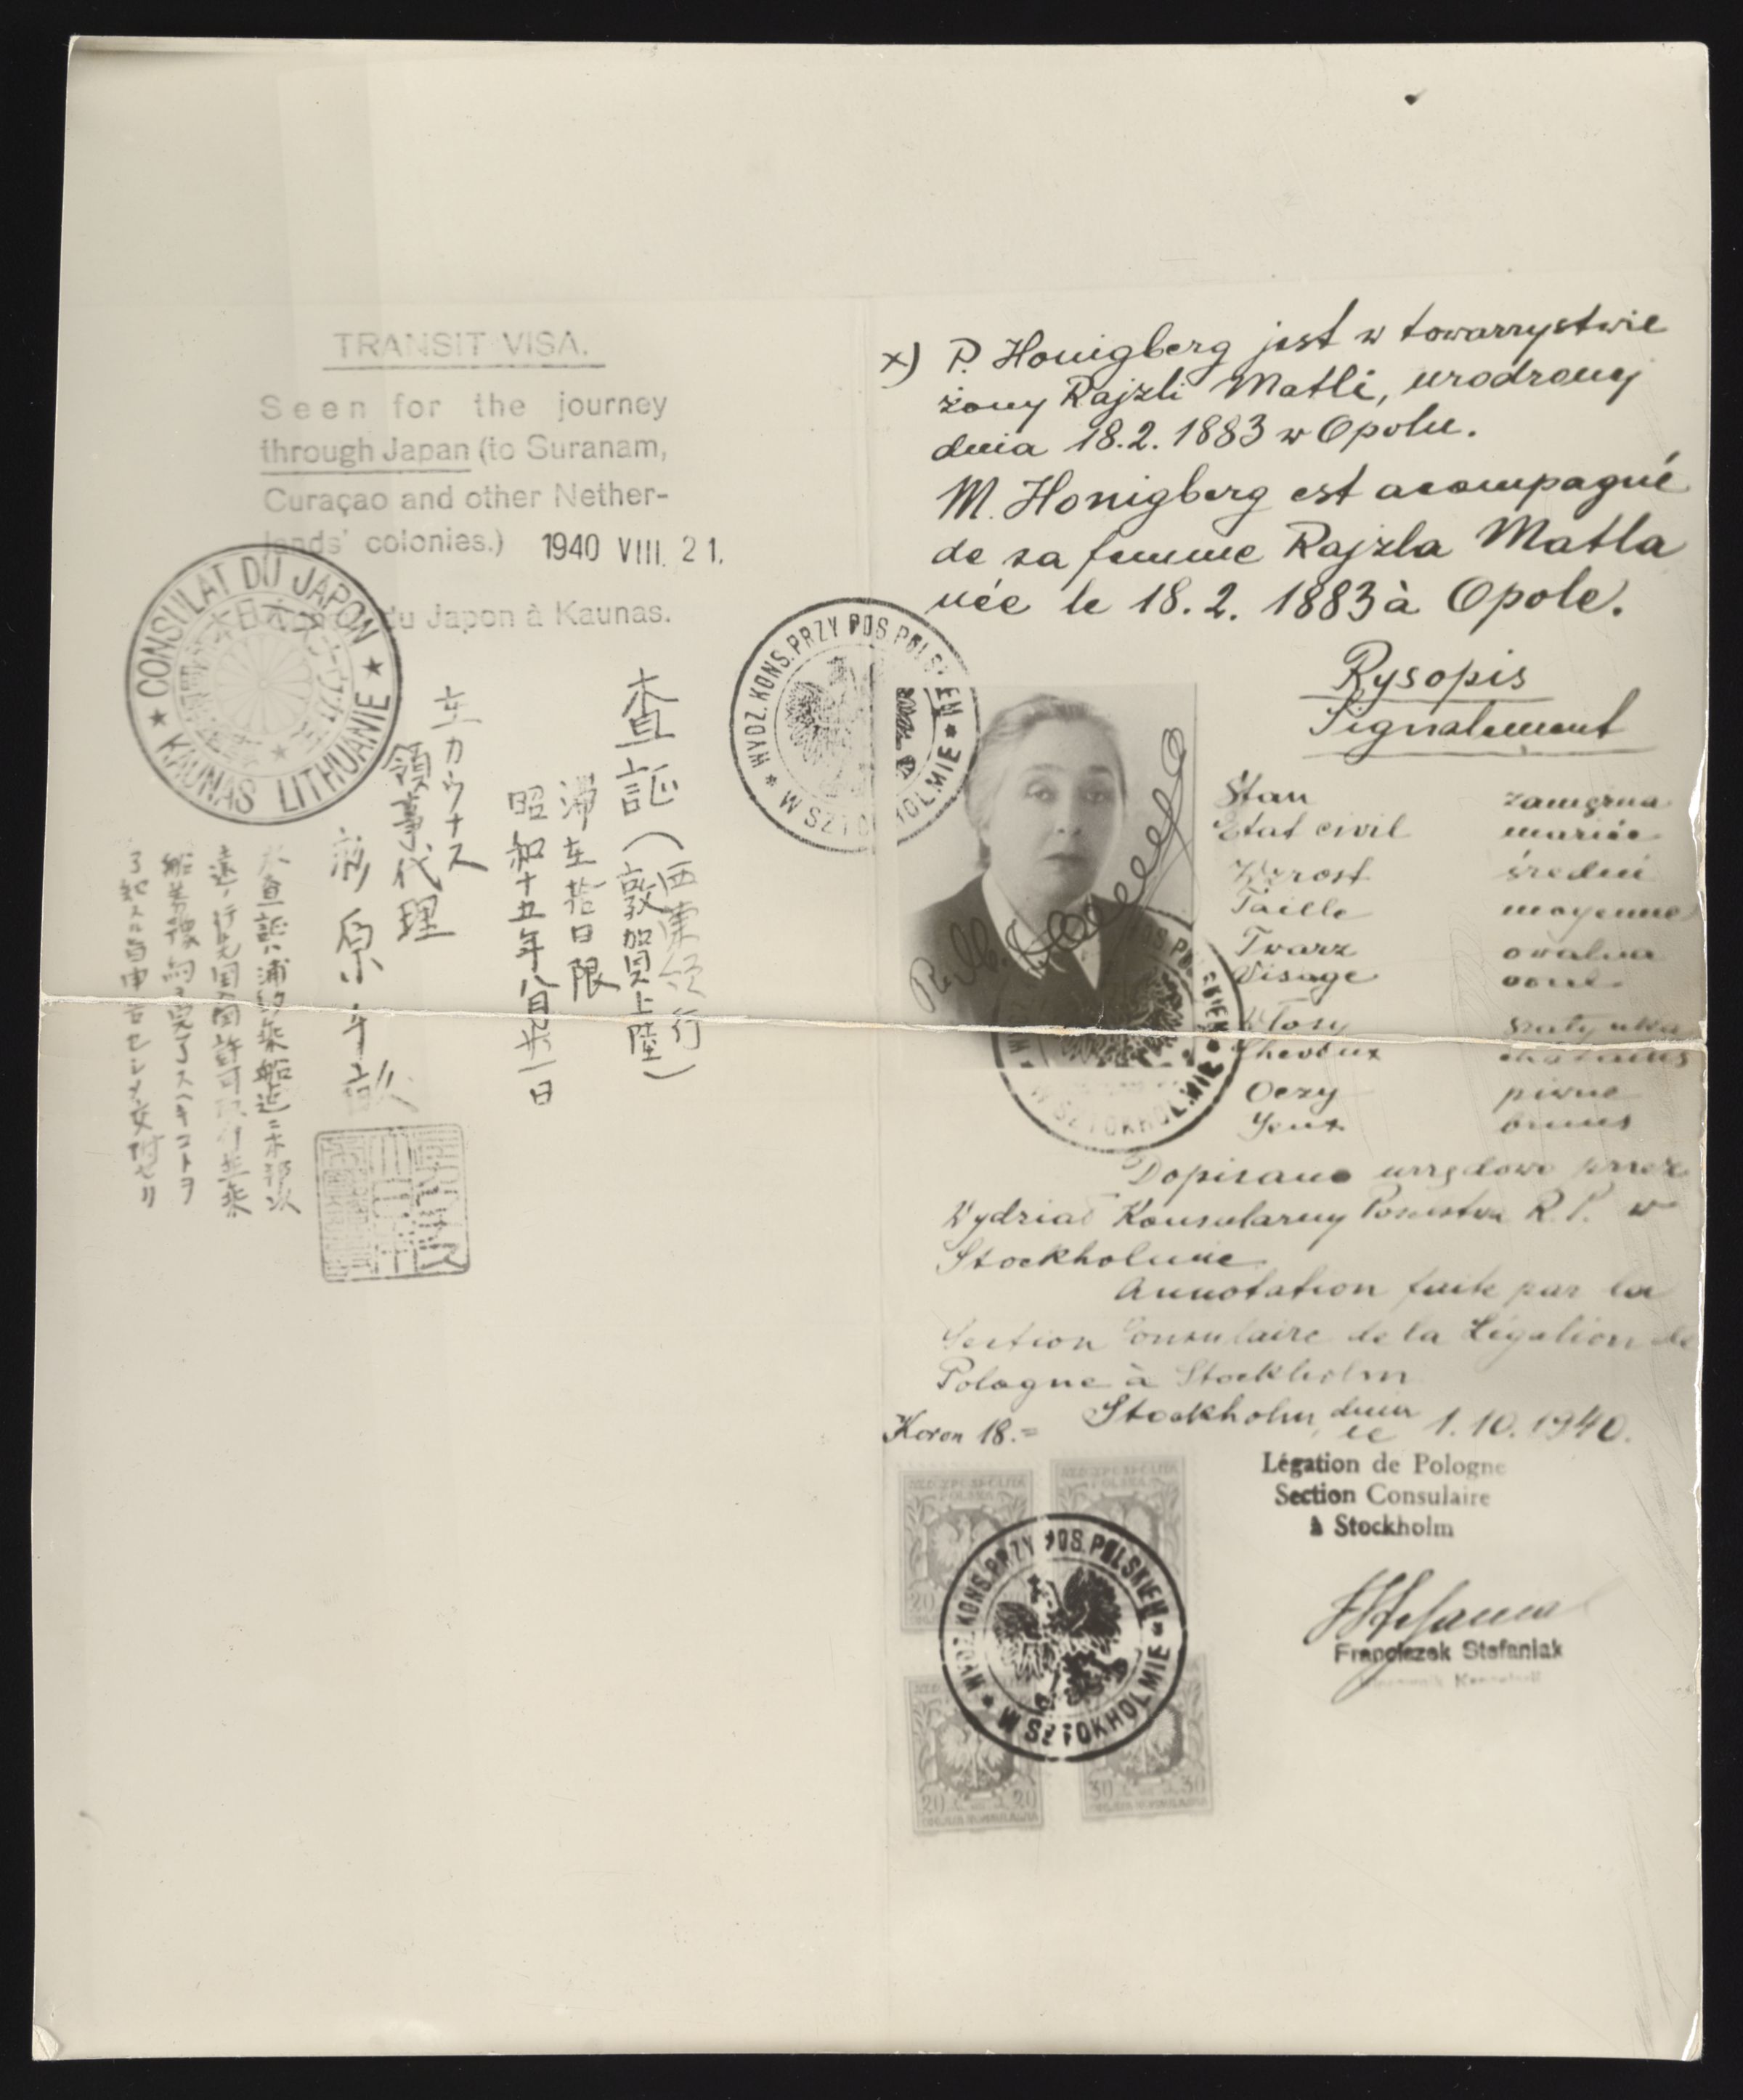 TRANSIT VISA.
Seen for the journey
through Japan (to Suranam,
Curaçao and other Nether-
lands' colonies.) 1940 VIII. 21.
du Japon à Kaunas.
CONSULAT DU JAPON
KAUNAS LITHUANIE
査証(西蘭領行
敦賀上陸)
滞在拾日限
昭和十五年八月廿一日
在カウナス
領事代理
杉原千畝
本査証ハ浦塩乗船迄ニ本邦以
遠ノ行先国入国許可取付並乗
船券予約完了スヘキコトヲ
了起スル旨申告セシメ交付セリ
x) P. Honigberg jest w towarzystwie
żony Rajzli Matli, urodzony
dnia 18.2.1883 w Opolu.
M. Honigberg est acompagné
de sa femme Rajzla Matla
née le 18.2.1883 à Opole.
WYDZ. KONS. PRZY POS. POLSKIEM
W SZTOKHOLMIE
Rysopis
Signalement
Stan zamężna
Etat civil mariée
Wzrost średni
Taille moyenne
Twarz owalna
Visage oval
Włosy szatynka
Cheveux châtains
Oczy piwne
Yeux bruns
POS. POLSKIEM
W SZTOKHOLMIE
Dopisano urzędowo przez
Wydział Konsularny Poselstwa R.P. w
Stockholmie
Annotation faite par la
Section Consulaire de la Légation de
Pologne à Stockholm
Stockholm, dnia
le 1.10.1940.
Koron 18.=
Légation de Pologne
Section Consulaire
à Stockholm
RZECZPOSPOLITA
POLSKA
20
20 20
30 30
WYDZ. KONS. PRZY POS. POLSKIEM
W SZTOKHOLMIE
Franciszek Stefaniak